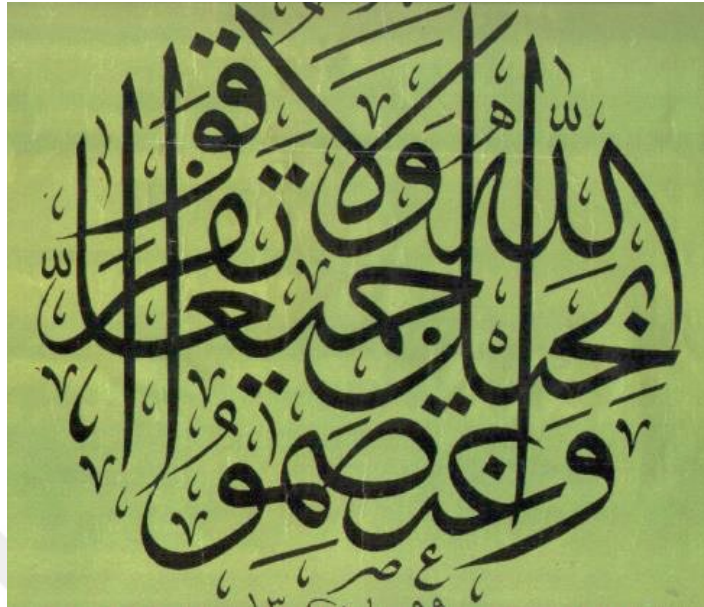 واعتصموا
بحبل الله جميعا
ولا تفرقوا